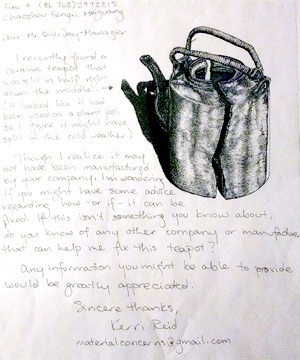 Fax # (86 768) 2972815
Chaozhou Fengxi Heguang
Dear Mr. Qiu, Jay-Manager
I recently found a
ceramic teapot that
was split in half right
down the middle
(It looked like it had
been used as a plant pot,
so I figure it might have
split in the cold weather.)
Though I realize it may
not have been manufactured
by your company, I'm wondering
if you might have some advice
regarding how -or if- it can be
fixed. If this isn't something you know about,
do you know of any other company or manufacturer
that can help me fix this teapot?
Any information you might be able to provide
would be greatly appreciated.
Sincere thanks,
Kerri Reid
materialconcerns@gmail.com